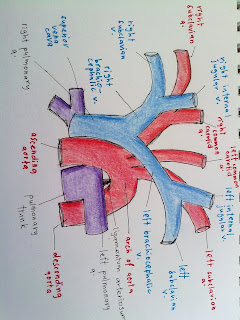 right subclavian a.
right internal
jugular v.
right
common
carotid
a.
left common
carotid
a.
left internal
jugular v.
right
subclavian v.
right
brachio-
cephalic v.
superior
vena
cava
right pulmonary
a.
left subclavian
a.
left
subclavian
v.
left brachiocephalic
v.
arch of aorta
ligamentum arteriosum
left pulmonary
a.
ascending
aorta
pulmonary
trunk
descending
aorta